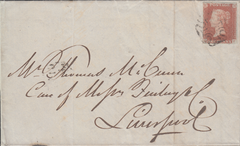 Mr. Thomas McCunn
Care of Messrs Finlay & Co
Liverpool